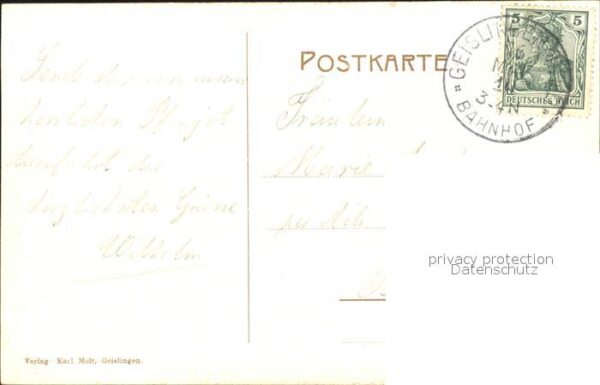 POSTKARTE
5 5
DEUTSCHES REICH
GEISLINGEN
MAI
10
3-4N
BAHNHOF
Sende dir von unserer
herrlichen Pfingst
die
herzlichsten Grüsse
Wilhelm
Fräulein
Marie
privacy protection
Datenschutz
Verlag Karl Molt, Geislingen